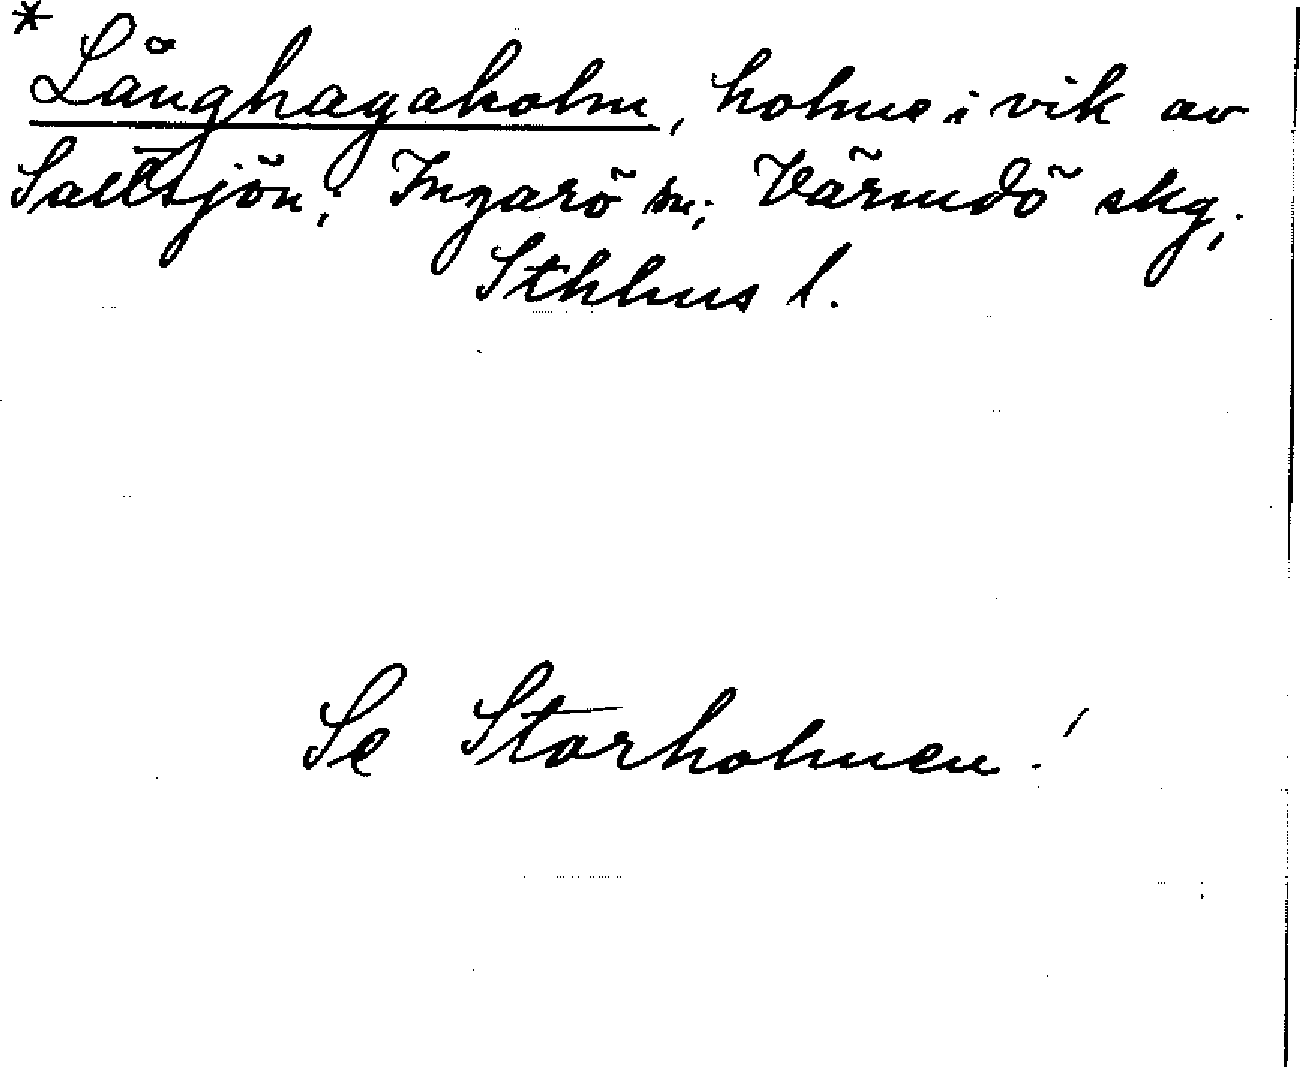 * Långhagaholm, holme i vik av
Saltsjön; Ingarö sn; Värmdö skg;
Sthlms l.
Se Storholmen!